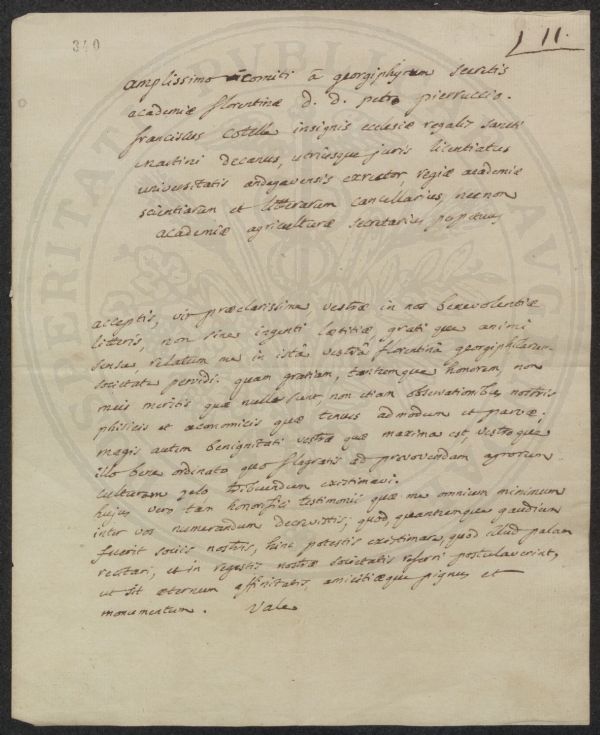 340
L 11.
amplissimo comiti ā georgiphyrum secretis
academiæ florentinæ d. d. petro pierruccio.
franciscus Cotelle insignis ecclesiæ regalis sancti
martini decanus, utriusque juris licentiatus
universitatis andegavensis exrector, regiæ academiæ
scientiarum et litterarum cancellarius, necnon
academiæ agriculturæ secretarius perpetuus
acceptis, vir præclarissime vestræ in nos benevolentiæ
litteris, non sine ingenti lætitiæ grati que animi
sensu, relatum me in istâ vestrâ florentinâ georgiphilarum
societate pervidi. quam gratiam, tantumque honorem, non
meis meritis quæ nulla sunt non etiam observationibus nostris
phisicis et œconomicis quæ tenues admodum et parvæ.
magis autem benignitati vestræ quæ maxima est, vestro que
illo bene ordinato quo flagratis ad provovendam agrorum
culturam zelo tribuendum existimavi.
hujus vero tam honorifici testimonii quæ me omnium minimum
inter vos numerandum decrevistis; quod, quantumque gaudium
fuerit sociis nostris, hinc potestis existimare, quod illud palam
recitari, et in regestis nostræ societatis referri postulaverint,
ut sit æternum affinitatis, amicitiæque pignus et
monumentum. Vale